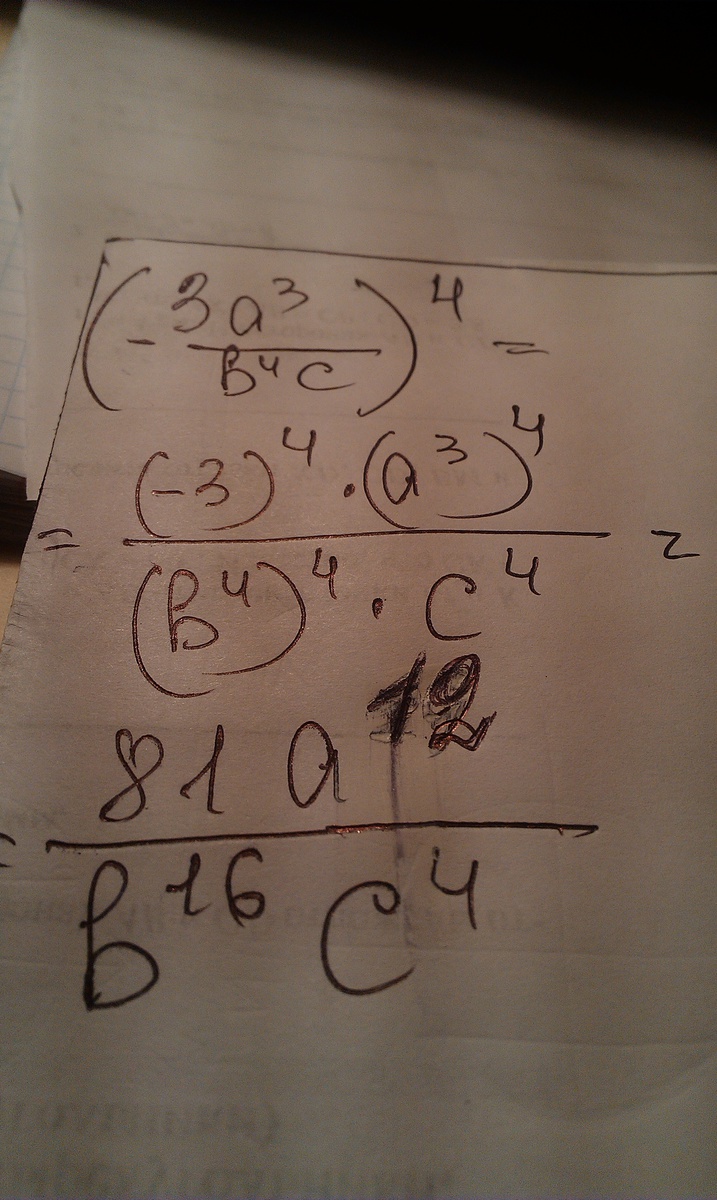 (- 3a³ / b⁴c)⁴ =
= (-3)⁴ · (a³)⁴ / (b⁴)⁴ · c⁴ =
= 81 a¹² / b¹⁶ c⁴